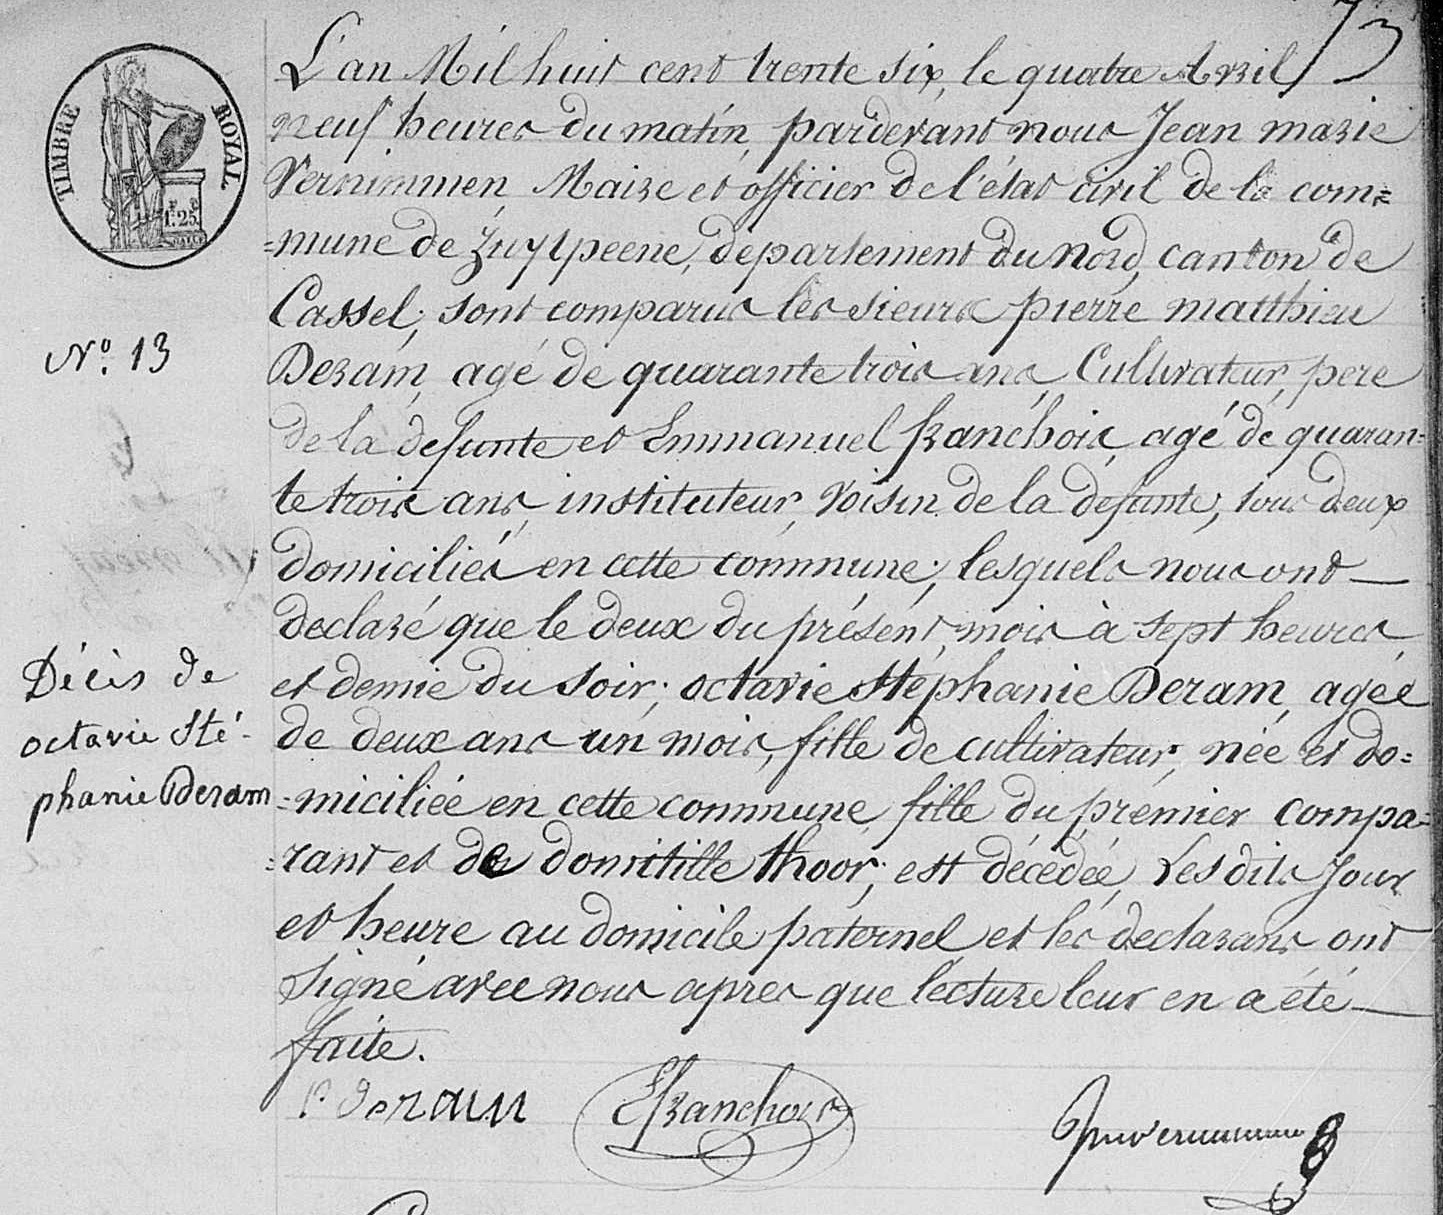 73
TIMBRE ROYAL
1F.25
L'an Mil huit cent trente six, le quatre Avril
neuf heures du matin, pardevant nous Jean marie
Vernimmen, Maire et officier de l'état civil de la com=
=mune de Zuytpeene, departement du Nord, canton de
Cassel, sont comparus les sieurs pierre matthieu
Deram, agé de quarante trois ans, Cultivateur, pere
de la defunte et Emmanuel franchois, agé de quaran=
te trois ans, instituteur, voisin de la defunte, tous deux
domiciliés en cette commune, lesquels nous ont
declaré que le deux du présent, mois à sept heures
et demie du soir, octavie stéphanie Deram, agée
de deux ans un mois, fille de cultivateur, née et do=
=miciliée en cette commune, fille du prémier compa=
=rant et de domitille thoor, est décédée, Les dits Jour
et heure au domicile paternel et les declarans ont
signé avec nous apres que lecture leur en a été
faite.
N° 13
Décès de
octavie sté-
phanie Deram
P. deram
E franchois